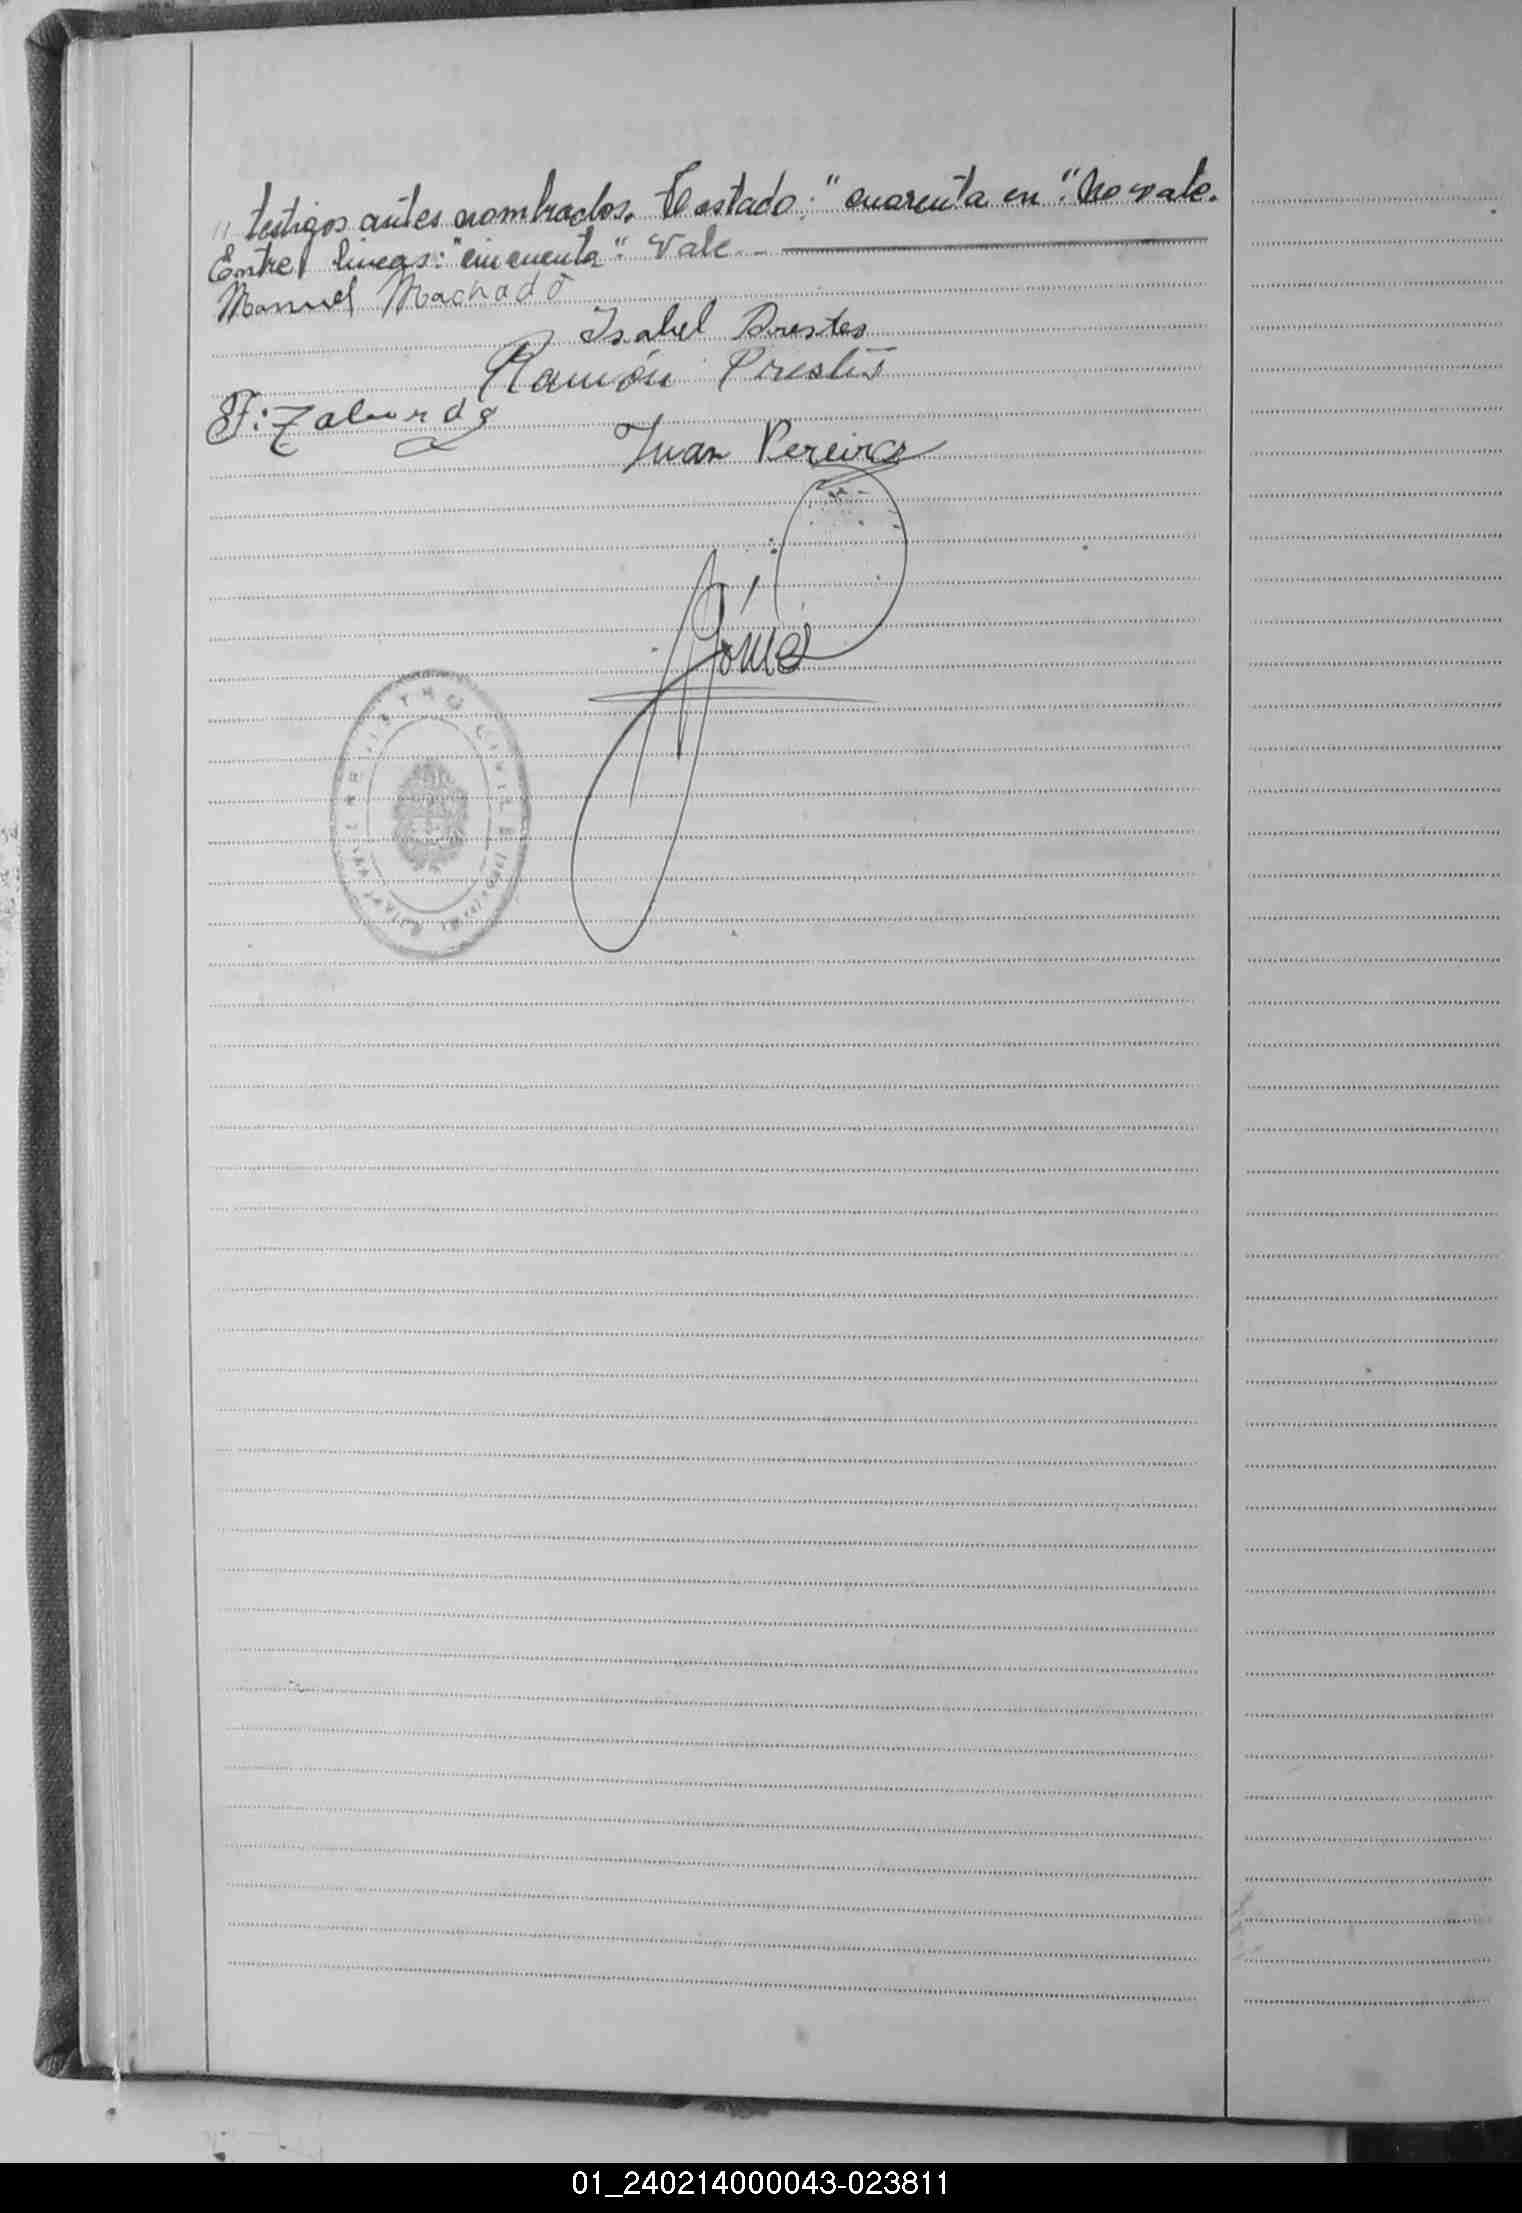 " testigos antes nombrados. Testado: "cuarenta en". No vale.
Entre lineas: "cincuenta". Vale.
Manuel Machado
Isabel Prestes
Ramón Prestes
F: Zaburda
Juan Pereira
Gómez
REGISTRO CIVIL
01_240214000043-023811